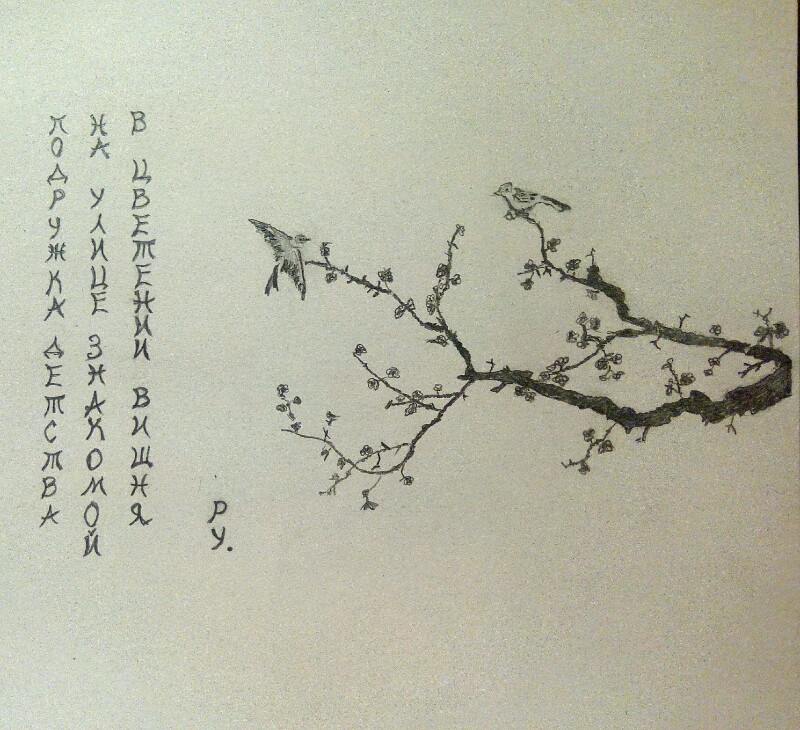 В ЦВЕТЕНИИ ВИШНЯ
НА УЛИЦЕ ЗНАКОМОЙ
ПОДРУЖКА ДЕТСТВА
РУ.